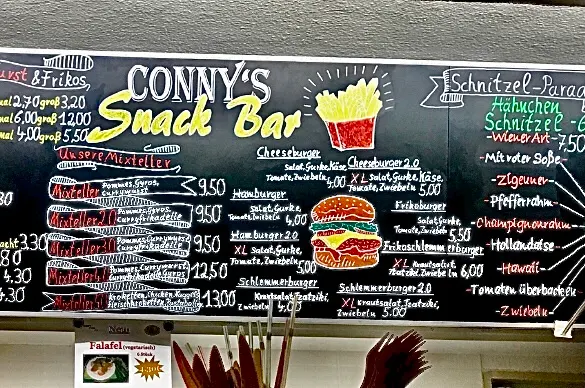 urst & Frikos
mal 2,70 groß 3,20
mal 6,00 große 12,00
mal 4,00 groß 5,50
3.30
4.30
4.30
CONNY'S
Snack Bar
Unsere Mixteller
Mixteller Pommes, Gyros, Currywurst 9,50
Mixteller 2.0 Pommes, Gyros, Currfrikadelle 9,50
Mixteller 3.0 Pommes, Currywurst, Currfrikadelle 9,50
Mixteller 4.0 Pommes, Currywurst, Gyros, Currfrikadelle 12,50
Mixteller 5.0 Kroketten, Chicken Nuggets 13,00
Cheeseburger
Salat, Gurke, Käse,
Tomate, Zwiebeln 4,00
Hamburger
Salat, Gurke,
Tomate, Zwiebeln 4,00
Hamburger 2.0
XL Salat, Gurke,
Tomate, Zwiebeln 5,00
Schlemmerburger
Krautsalat, Tzatziki,
Zwiebeln 4,00
Cheeseburger 2.0
XL Salat, Gurke, Käse,
Tomate, Zwiebeln 5,00
Frikoburger
Salat, Gurke,
Tomate, Zwiebeln 5,50
Frikoschlemmerburger
XL Krautsalat,
Tzatziki, Zwiebeln 6,00
Schlemmerburger 2.0
XL Krautsalat, Tzatziki,
Zwiebeln 5,00
Schnitzel-Parad
Hähnchen
Schnitzel -6
-Wiener Art- 7,50
-Mit roter Soße-
-Zigeuner-
-Pfefferrahm-
-Championrahm-
-Hollandaise-
-Hawaii-
-Tomaten überbacken
-Zwiebeln-
Neu
Falafel (vegetarisch)
6 Stück